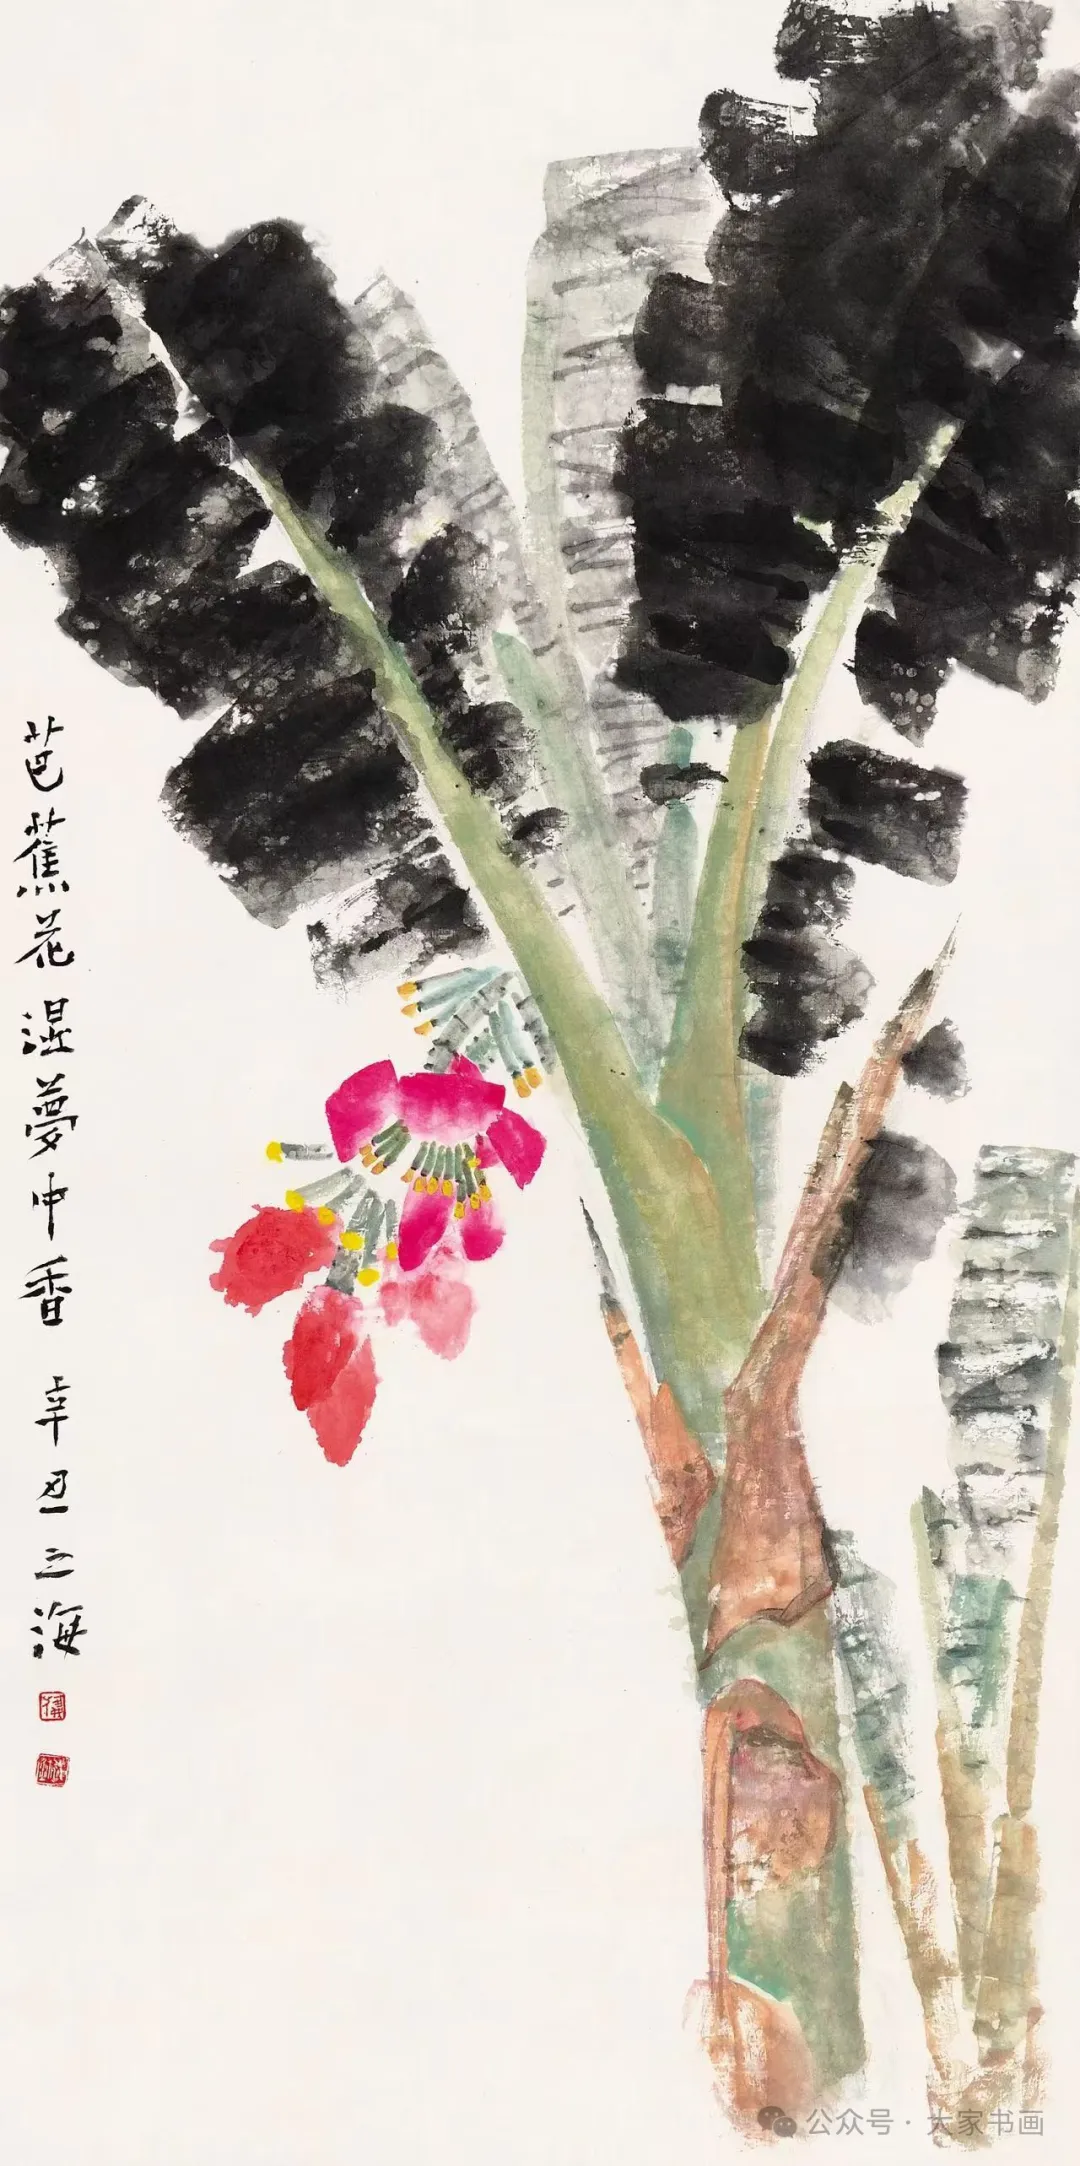 芭蕉花湿夢中香 辛丑之海
公众号·大家书画